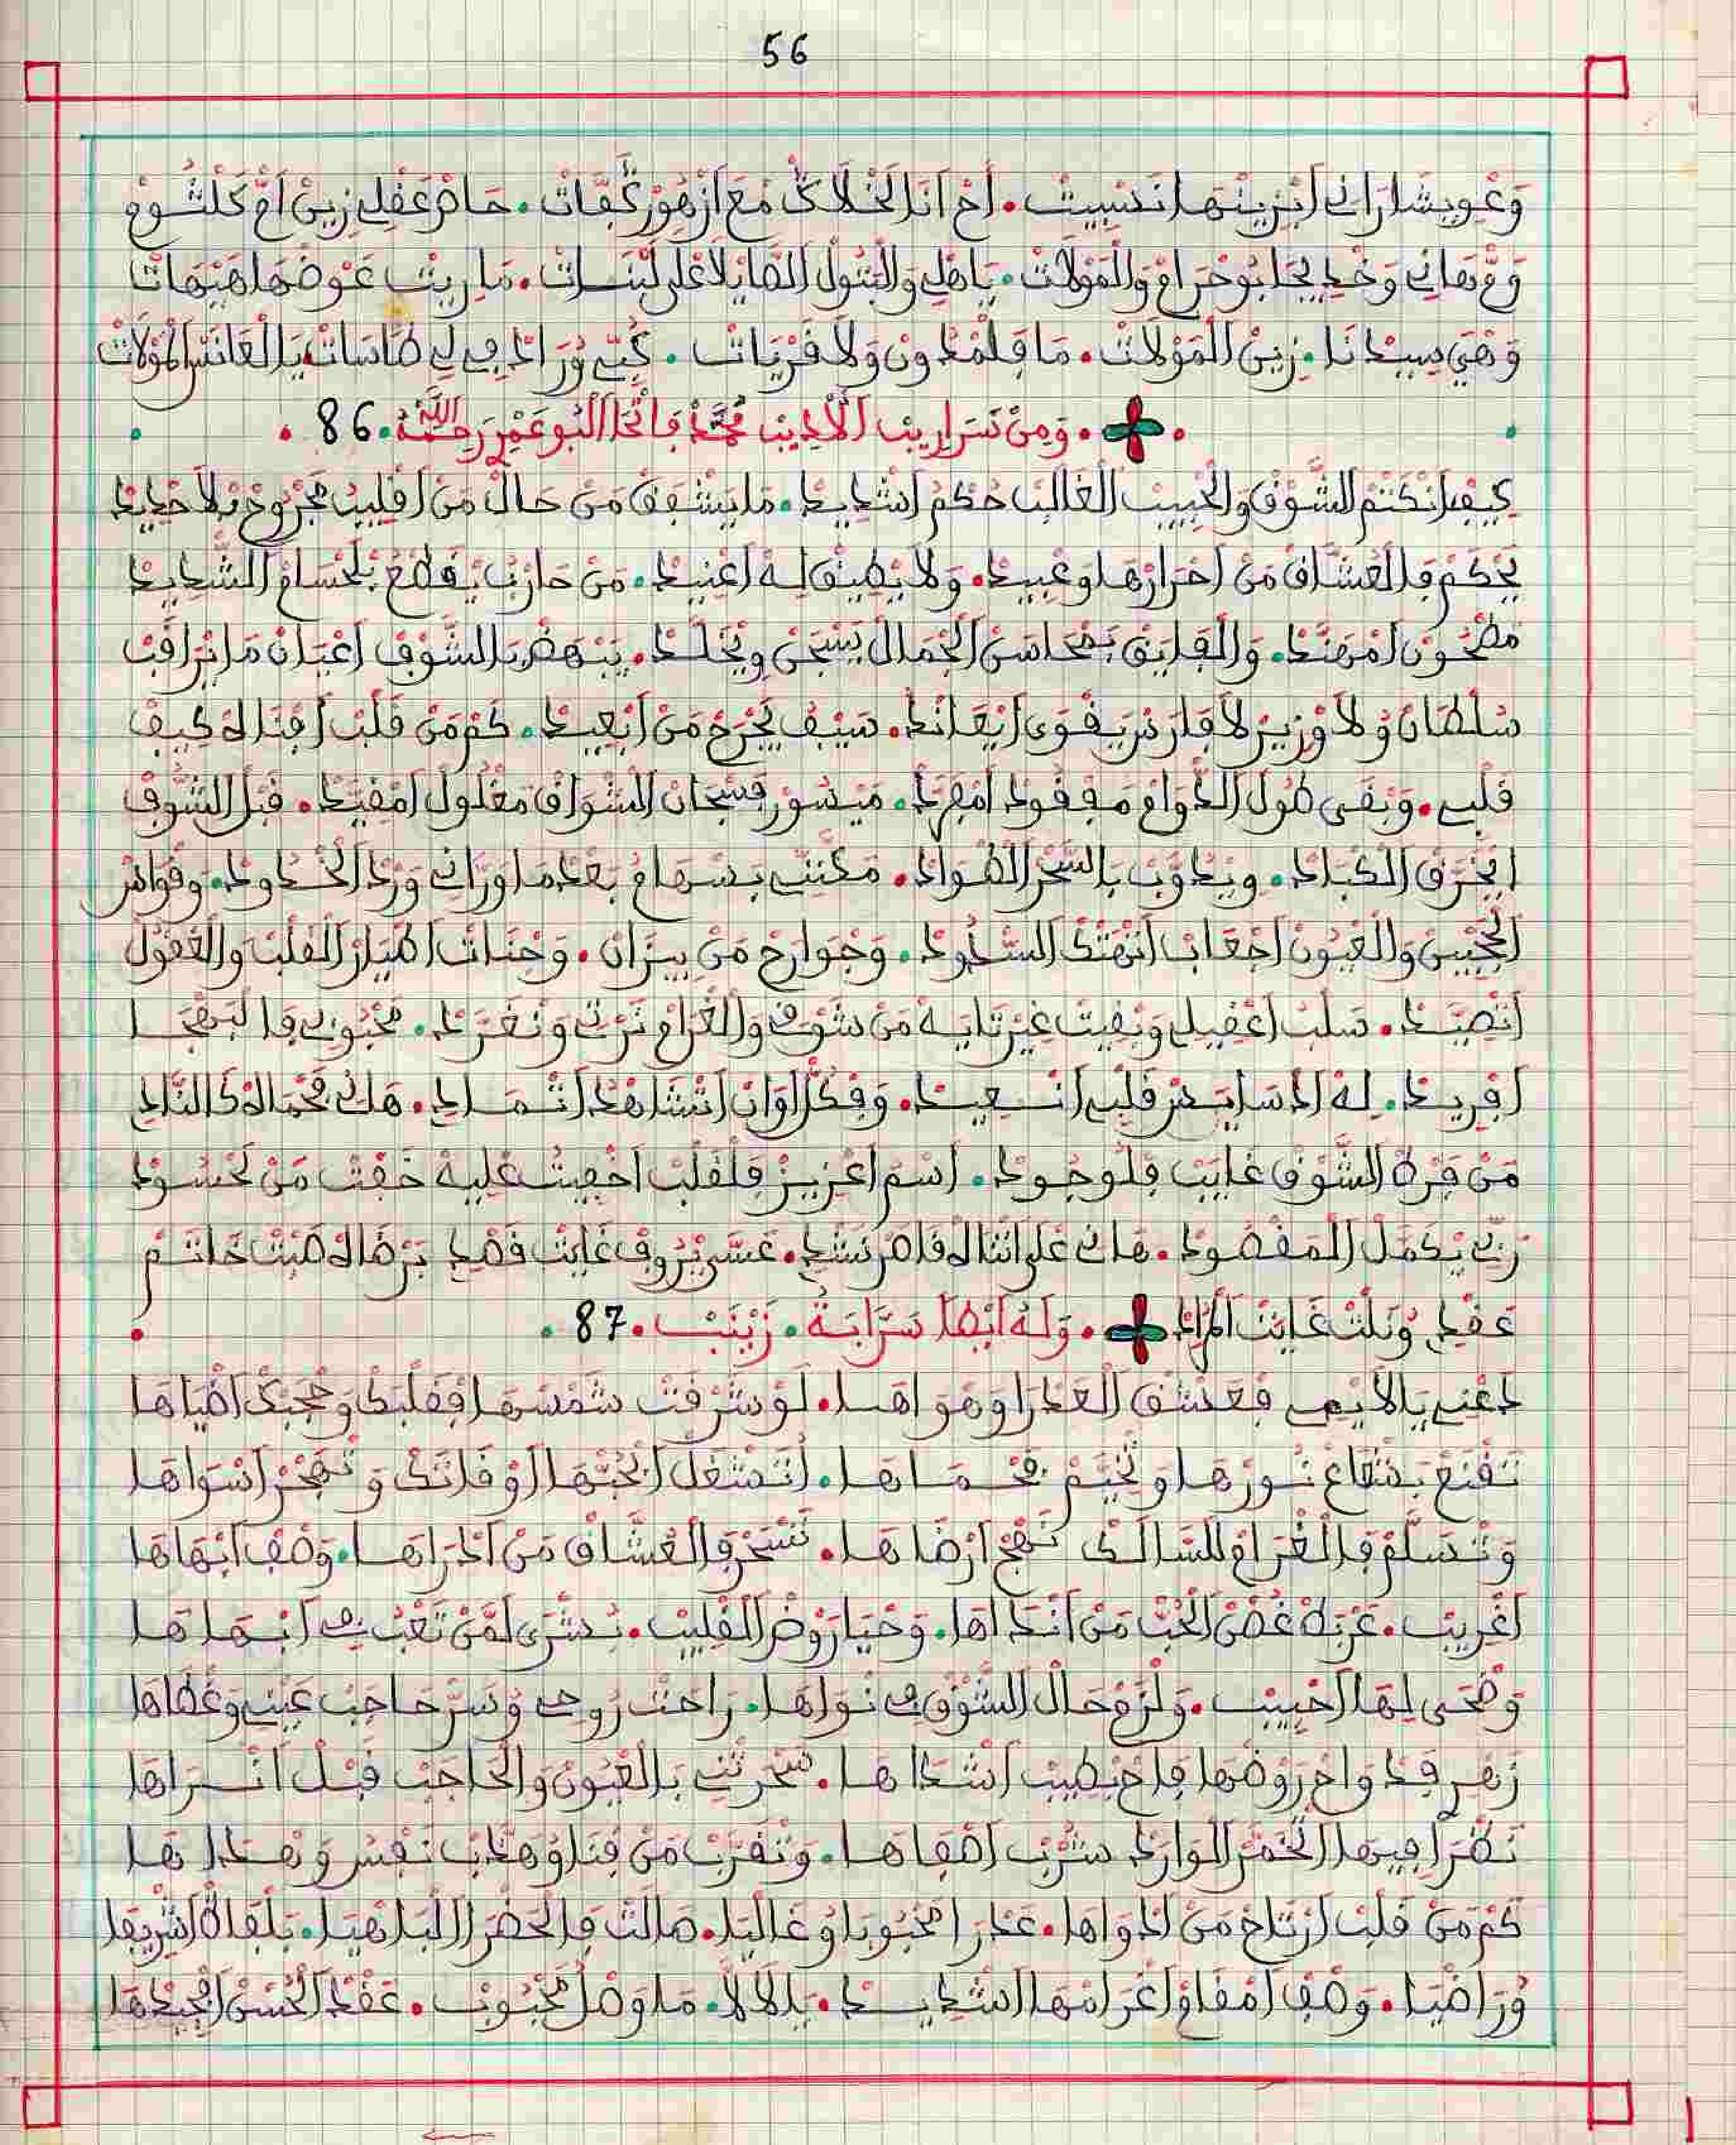 56
وَغْوِيشَا رَانِي ابْزِينْهَا نَسِيتْ. أَحْ أَنَا لَخْلَاكْ مْعَ ازْهُورْ كَبَّاتْ. حَازْ عَقْلِي زِينْ امّْ كَلْثُومْ
وَعْ بَهَانِي وَخْدِي بِجَا بُوحْرَامْ وَالْمَوْلَاتْ. يَاهْلِي وَالْبَتُولْ الصَّايْلَا عْلَى لَبْنَاتْ. مَا رِيتْ عَوْضْهَا هَيْهَاتْ
وَهْيَ سِيدَانَا. زِينْ الْمَوْلَاتْ. مَا فِلْمْدُونْ وَلَا قَرْيَاتْ. كُبِّي وُرَادِفِي لِي طَاسَاتْ يَا الْعَانَسْ الْمُولَاتْ
وَمِنْ سَرَارِيبْ الْأَدِيبْ مُحَمَّدْ بَاتْحَا الْبُوعَمْرِ رَحِمَهُ اللَّهُ. 86
كِيفْ انْكَتْمْ الشَّوْقْ وَالْحْبِيبْ الْغَالَبْ حُكْمُ اشْدِيدْ. مَا يَشْفَقْ مَنْ حَالْ مَنْ اقْلِيبُ مَجْرُوحْ بْلَا حْدِيدْ
يَحْكَمْ فَالْعُشَّاقْ مَنْ احْرَارْهَا وَعْبِيدْ. وَلَا يْطِيقْ لِهْ اعْنِيدْ. مَنْ حَارْبُ يْقَطْعُ بَلْحْسَامْ الشّْدِيدْ
مَطْحُونْ امْهَنَّدْ. وَالْفَايَقْ بَمْحَاسَنْ الْجْمَالْ يَسْجَنْ وِيْخَلَّدْ. يَبْهَضْ بَالشَّوْقْ اعْيَانْ مَا يْرَاقَبْ
سُلْطَانْ وُلَا وْزِيرْ لَا فَارَسْ يَقْوَى ايْعَانَدْ. سَيْفُ يَجْرَحْ مَنْ ابْعِيدْ. كَمْ مَنْ قَلْبْ افْنَاهْ كِيفْ
قَلْبِي. وَبْقَى طُولْ الدّْوَامْ مَفْقُودْ امْفَرَّدْ. مَيْسُورْ فَسْجَانْ الشَّوْقْ مَغْلُولْ امْقَيَّدْ. قَبْلْ الشُّوفْ
ايْحَرَقْ الْكْبَادْ. وِيْدَوَّبْ بَالسّْحَرْ الْفْوَادْ. مَكَّنِّي بَسْهَامُ بَعْدْمَا وَرَّانِي وَرْدْ الْخْدُودْ. وَقْوَاسْ
الْحَجْبِينْ وَالْعْيُونْ اجْعَابْ اتْهَتْكْ السّْدُودْ. وَجْوَارَحْ مَنْ بِيزَانْ. وَجْنَاتْ اطْيَارْ الْقَلْبْ وَالْعْقُولْ
اتْصَيَّدْ. سَلْبْ اعْقِيلِي وَبْقِيتْ غِيرْ تَايَهْ مَنْ شَوْقِي وَالْغْرَامْ نَرْتِي وَنْغَرَّدْ. مَحْبُوبِي فَالْبَهْجَا
افْرِيدْ. لِهْ الْمْسَايَسْ قَلْبِي اسْعِيدْ. وَفِكُلّْ اوَانْ اتْشَاهْدُ اتْمَادِي. هَانِي فَحْمَاهْ كَانْنَادِي
مَنْ فَرْطْ الشَّوْقْ غَايَبْ فِلُوجُودْ. اسْمُ اعْزِيزْ فِلْقَلْبْ اخْفِيتُ عْلِيهْ خَفْتْ مَنْ لَحْسُودْ
رَبِّي يْكَمَّلْ الْمَقْصُودْ. هَانِي عْلَى اثْنَاهْ قَاصَرْ نَشْدِي. عَسَّى يْرُوفْ غَايْتْ قَصْدِي بَرْضَاهْ صَبْتْ خَاتَمْ
عَقْدِي وُنَلْتْ غَايْتْ الْمُرَادْ. وَلَهُ أَيْضًا سَرَّابَةُ. زَيْنَبْ. 87
دَعْنِي يَالَايْمِي فَعْشْقْ الْعَدْرَا وَهْوَاهَا. لَوْ شَرْقَتْ شَمْسْهَا فْقَلْبَكْ وَحَجْبَكْ اضْيَاهَا
تَقْنَعْ بَشْعَاعْ نُورْهَا وَتْخَيَّمْ فَحْمَاهَا. اتَّشْغَلْ ابْحُبّْهَا اوْقَاتَكْ وَتَهْجَرْ اسْوَاهَا
وَتْسَلَّمْ فَالْغْرَامْ لْلسَّالَكْ نَهْجْ ارْضَاهَا. تَسْحَرْ فَالْعُشَّاقْ مَنْ ادْرَاهَا. وَصْفْ ابْهَاهَا
اغْرِيبْ. عَرْبَدْ غُصْنْ الْحُبّْ مَنْ انْدَاهَا. وَحْيَا رَوْضْ الْقْلِيبْ. بُشْرَى لَمَّنْ تَعْبُ فِي ابْهَاهَا
وَضْحَى لِهَا احْبِيبْ. وَلْزَمْ حَالْ الشَّوْقْ فِي نْوَاهَا. رَاحَتْ رُوحِي وُسَرّْ حَاجَبْ عَيْنِي وَغْطَاهَا
زَهْرْ فَدْوَاحْ رَوْضْهَا فَاحْ بْطِيبْ اشْدَاهَا. سَحْرَتْنِي بَالْعْيُونْ وَالْحَاجَبْ قَبْلْ انْرَاهَا
نَظْرَا فِيهَا الْخْمَرْ الْوَارَدْ شَرْبْ اصْفَاهَا. وَتْقَرَّبْ مَنْ فْنَاوْ هَدَّبْ نَفْسُ وَنْهَاهَا
كَمْ مَنْ قَلْبْ ارْتَاحْ مَنْ ادْوَاهَا. عَدْرَا مَحْبُوبَا وُغَالْيَا. صَالَتْ فَالْحَضْرَا الْبَاهْيَا. بَلْقَاةْ اشْرِيفَا
وُرَاضْيَا. وَصْفْ امْقَامْ اغْرَامْهَا اشْدِيدْ. يَالَالَّا. مَا وَصْلُ مَحْبُوبْ. عَقْدْ الْحُسْنْ ابْجِيدْهَا